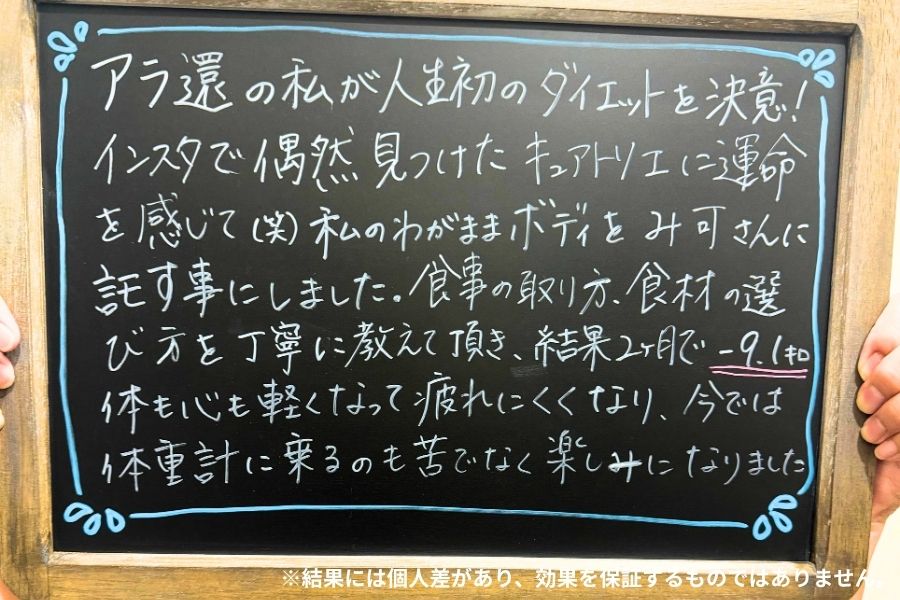 アラ還の私が人生初のダイエットを決意!
インスタで偶然見つけたキュアトリエに運命
を感じて(笑)私のわがままボディをみ可さんに
託す事にしました。食事の取り方、食材の選
び方を丁寧に教えて頂き、結果2ヶ月で-9.1キロ
体も心も軽くなって疲れにくくなり、今では
体重計に乗るのも苦でなく楽しみになりました
※結果には個人差があり、効果を保証するものではありません。